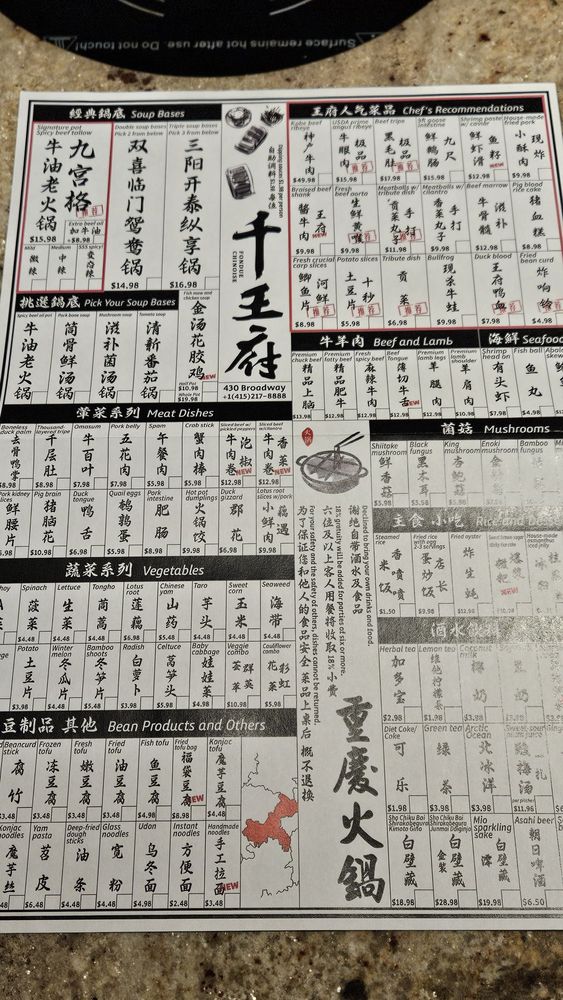 Surface remains hot after use. Do not touch!
經典鍋底 Soup Bases
Signature pot
Spicy beef tallow
牛油老火锅
九宫格
$15.98
Extra beef oil
加牛油
+$8.98
Mild
微辣
Medium
中辣
SSS spicy!
变态辣
Double soup bases
Pick 2 from below
双喜临门鸳鸯锅
$14.98
Triple soup bases
Pick 3 from below
三阳开泰纵享锅
$16.98
挑選鍋底 Pick Your Soup Bases
Spicy beef oil pot
牛油老火锅
Pork bone soup
筒骨鲜汤锅
Mushroom soup
滋补菌汤锅
Tomato soup
清新番茄锅
Fish maw and chicken soup
金汤花胶鸡
NEW
Half Pot
$10.98
Whole Pot
$19.98
自助调料
千王府
FONDUE CHINOISE
430 Broadway
+1(415)217-8888
王府人气菜品 Chef's Recommendations
Kobe beef ribeye
神户牛肉
$49.98
USDA prime angus ribeye
牛眼肉
$15.98
Beef tripe
极品黑毛肚
推荐
SR goose intestine
鲜鹅肠
九尺
$15.98
Shrimp paste w/ caviar
鲜虾滑
鱼籽
NEW
$12.98
House-made fried pork
小酥肉
现炸
$9.98
Braised beef shank
酱牛肉
王府
NEW
$9.98
Fresh beef aorta
生鲜黄喉
推荐
$9.98
Meatballs w/ tribute dish
贡菜丸子
手打
推荐
$9.98
Meatballs w/ cilantro
香菜丸子
手打
$9.98
Beef marrow
牛骨髓
滋补
$12.98
Pig blood rice cake
猪血糕
$8.98
Fresh crucial carp slices
鲫鱼片
河鲜
推荐
$8.98
Potato slices
土豆片
十秒
推荐
$5.98
Tribute dish
贡菜
推荐
$6.98
Bullfrog
现杀牛蛙
$9.98
Duck blood
王府鸭血
推荐
$7.98
Fried bean curd
炸响铃
推荐
$4.98
牛羊肉 Beef and Lamb
Premium chuck beef
精品上脑
$13.98
Premium fatty beef
精品肥牛
Fresh spicy beef
麻辣牛肉
Beef tongue
薄切牛舌
NEW
Premium lamb leg
羊腿肉
Premium lamb shoulder
羊肩肉
海鮮 Seafoo
Shrimp head on
有头虾
Fish ball
鱼丸
荤菜系列 Meat Dishes
Boneless duck palm
去骨鸭掌
$8.98
Thousand-layered tripe
千层肚
$8.98
Omasum
牛百叶
$7.98
Pork belly
五花肉
$7.98
Spam
午餐肉
$5.98
Crab stick
蟹肉棒
$5.98
Sliced beef w/ pickled peppers
牛肉卷
泡椒
NEW
$12.98
Sliced beef w/ cilantro
牛肉卷
香菜
NEW
$12.98
Pork kidney slices
鲜腰片
$6.98
Pig brain
猪脑花
$10.98
Duck tongue
鸭舌
$6.98
Quail eggs
鹌鹑蛋
$6.98
Pork intestine
肥肠
$8.98
Hot pot dumplings
火锅饺
$6.98
Duck gizzard
郡花
$6.98
Lotus root slices w/pork
小鲜肉
藕遇
$9.98
菌菇 Mushrooms
Shiitake mushroom
鲜香菇
$5.98
Black fungus
黑木耳
$3.98
King mushroom
杏鲍菇
$5.98
Enoki mushroom
金针菇
Bamboo fungus
蔬菜系列 Vegetables
Spinach
菠菜
$4.48
Lettuce
生菜
$4.48
Tongho
茼蒿
$4.48
Lotus root
莲藕
$6.98
Chinese yam
山药
$5.48
Taro
芋头
$4.48
Sweet corn
玉米
$4.48
Seaweed
海带
$4.48
Potato
土豆片
$3.98
Winter melon
冬瓜片
$3.98
Bamboo shoots
冬笋片
$5.48
Radish
白萝卜
$3.98
Celtuce
莴笋头
$5.98
Baby cabbage
娃娃菜
$4.98
Veggie combo
荟萃
群英
$10.98
Cauliflower combo
花菜
彩虹
$8.98
主食 小吃 Rice and
Steamed rice
米饭
香喷喷
$1.50
Fried rice with egg
2-3 servings
蛋炒饭
店长
$9.98
Fried oyster
炸生蚝
豆制品 其他 Bean Products and Others
Beancurd stick
腐竹
$3.48
Frozen tofu
冻豆腐
$3.48
Fresh tofu
嫩豆腐
$3.48
Fried tofu
油豆腐
$3.48
Fish tofu
鱼豆腐
$4.48
Fried tofu bag
福袋豆腐
NEW
$8.98
Konjac tofu
魔芋豆腐
$4.48
Konjac noodles
魔芋丝
$4.48
Yam pasta
苕皮
$6.48
Deep-fried dough sticks
油条
$4.48
Glass noodles
宽粉
$4.48
Udon
乌冬面
$4.48
Instant noodles
方便面
$2.48
Handmade noodles
手工拉面
NEW
$3.48
Declined to bring your own drinks and food.
谢绝自带酒水及食品
18% gratuity will be added for parties of six or more.
六位及以上客人用餐将收取18%小费
For your safety and the safety of others, dishes cannot be returned.
为了保证您和他人的食品安全 菜品上桌后 概不退换
重慶火鍋
酒水
Herbal tea
加多宝
$2.98
Lemon tea
维他柠檬茶
$1.98
Coconut milk
椰奶
Diet Coke/ Coke
可乐
$1.98
Green tea
绿茶
$3.98
Arctic Ocean
北冰洋
$3.98
酸梅汤
一扎
$11.96
Sho Chiku Bai Shirakabegura Kimoto Ginjo
白壁藏
$18.98
Sho Chiku Bai Shirakabegura Junmai Daiginjo
白壁藏
金装
$28.98
Mio sparkling sake
白壁藏
澪
$19.98
Asahi beer
朝日啤酒
$6.50